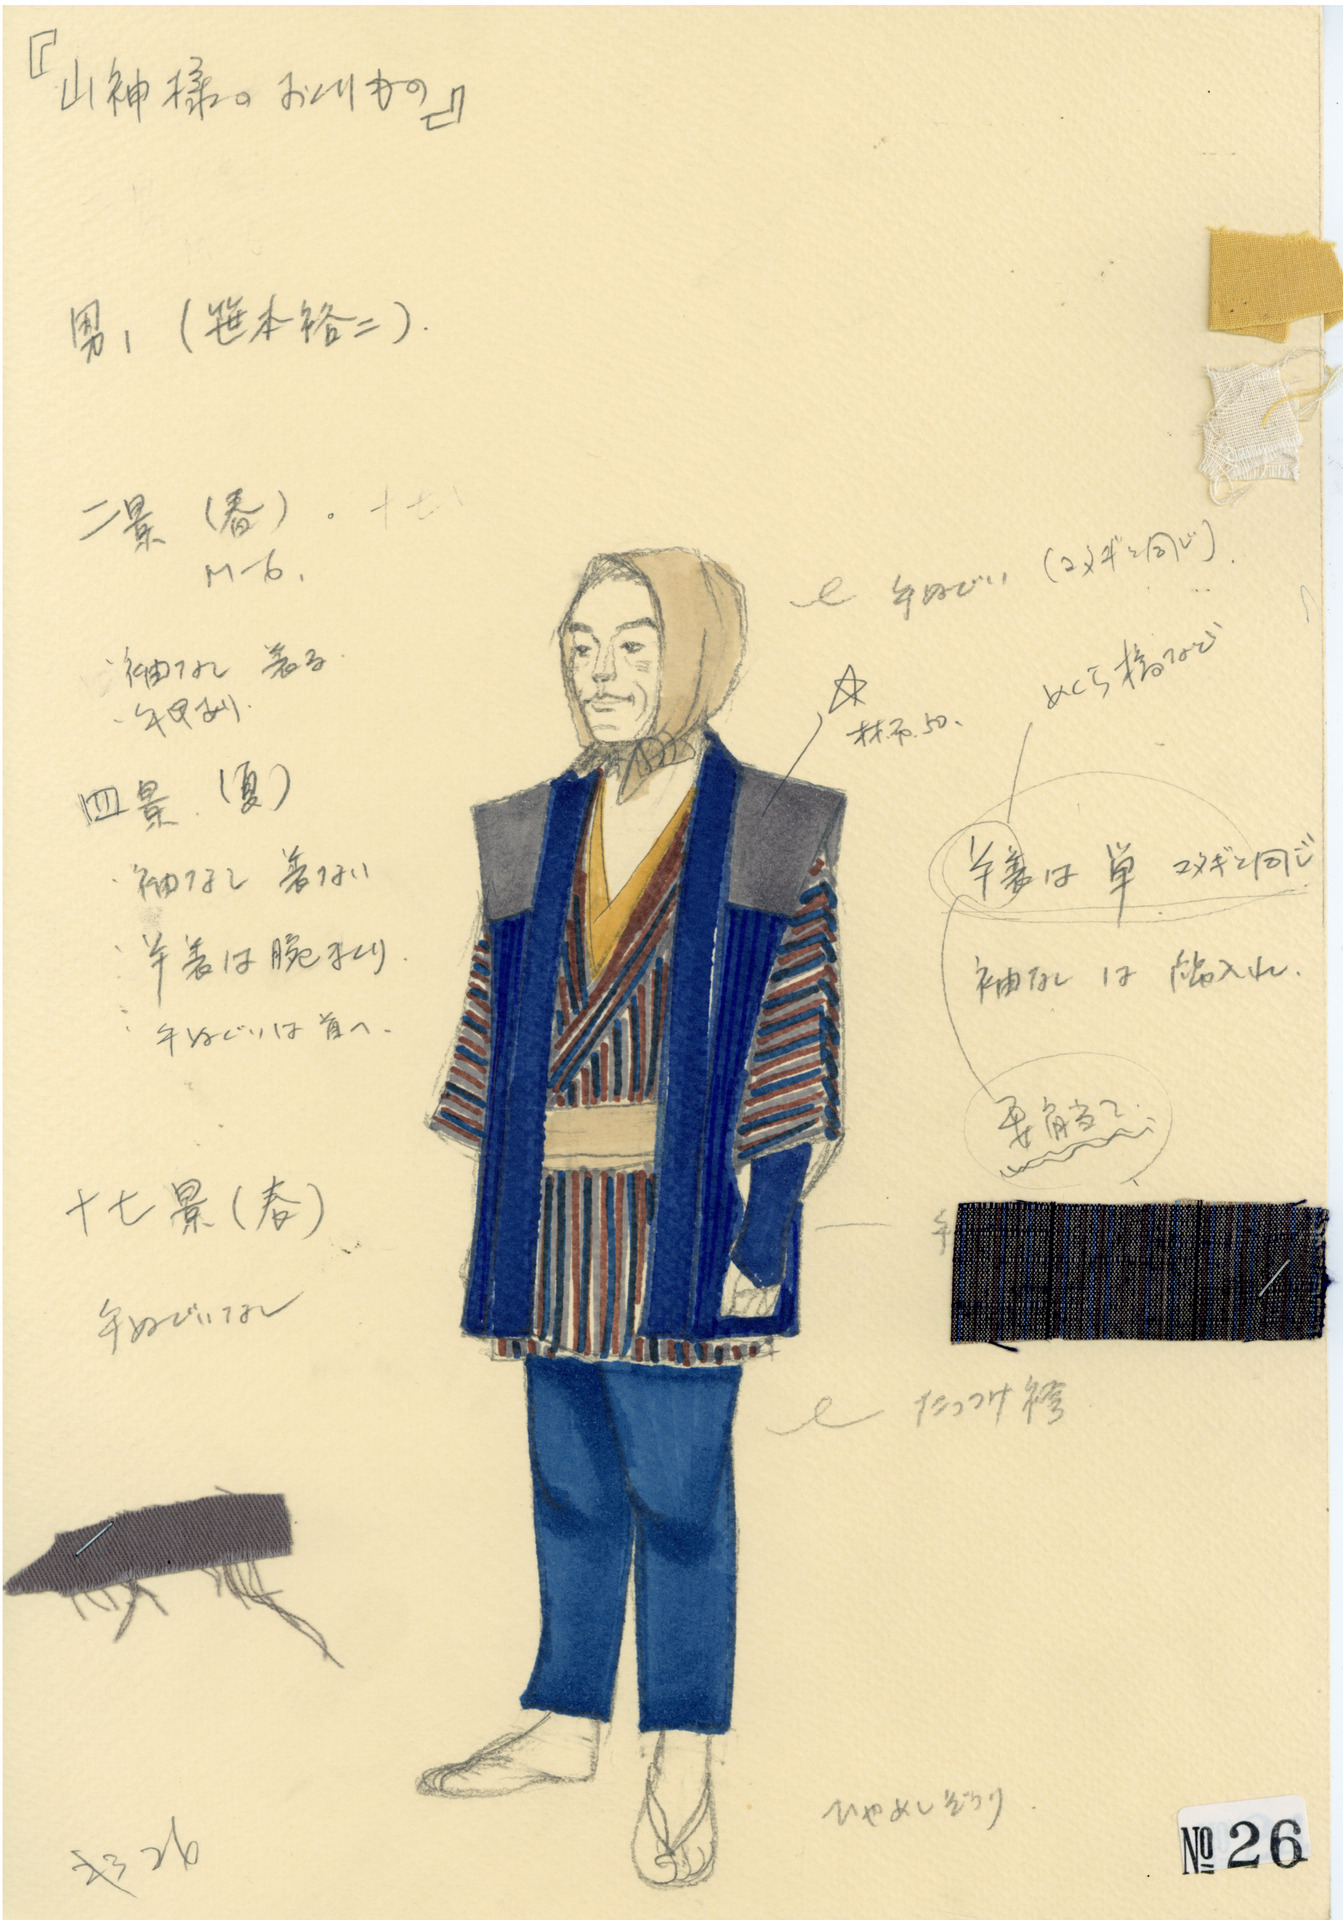 『山神様のおくりもの』
男1（笹本裕二）.
二景（春）.
M-6.
・袖なし 着る
・手甲あり.
四景.（夏）
・袖なし 着ない
・半着は腕まくり.
・手ぬぐいは首へ.
十七景（春）
手ぬぐいなし
手ぬぐい（コメギと同じ）.
めくら縞など
☆
半着は 単 コメギと同じ
袖なし は 綿入れ.
要肩当て.
手
たっつけ袴
ひやめしぞうり.
№26